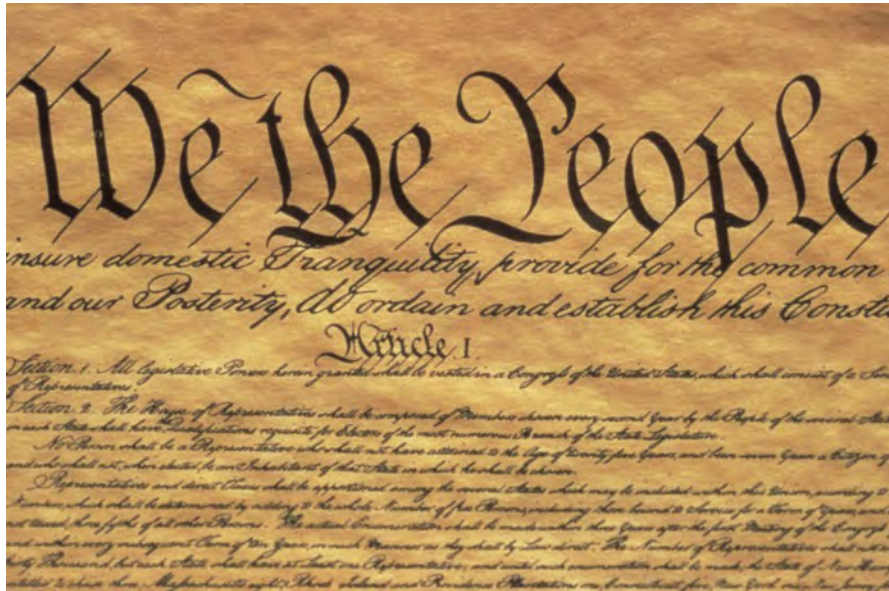 We the People
insure domestic Tranquility, provide for the common
and our Posterity, do ordain and establish this Constit
Article I.
Section. 1. All legislative Powers herein granted shall be vested in a Congress of the United States, which shall consist of a Sen
of Representatives.
Section. 2. The House of Representatives shall be composed of Members chosen every second Year by the People of the several State
in each State shall have the Qualifications requisite for Electors of the most numerous Branch of the State Legislature.
No Person shall be a Representative who shall not have attained to the Age of twenty five Years, and been seven Years a Citizen of
and who shall not, when elected, be an Inhabitant of that State in which he shall be chosen.
Representatives and direct Taxes shall be apportioned among the several States which may be included within this Union, according to
Numbers, which shall be determined by adding to the whole Number of free Persons, including those bound to Service for a Term of Years, and
not taxed, three fifths of all other Persons. The actual Enumeration shall be made within three Years after the first Meeting of the Congress
and within every subsequent Term of ten Years, in such Manner as they shall by Law direct. The Number of Representatives shall not
thirty Thousand, but each State shall have at Least one Representative; and until such enumeration shall be made, the State of New Hamp
entitled to chuse three, Massachusetts eight, Rhode Island and Providence Plantations one, Connecticut five, New York six, New Jersey